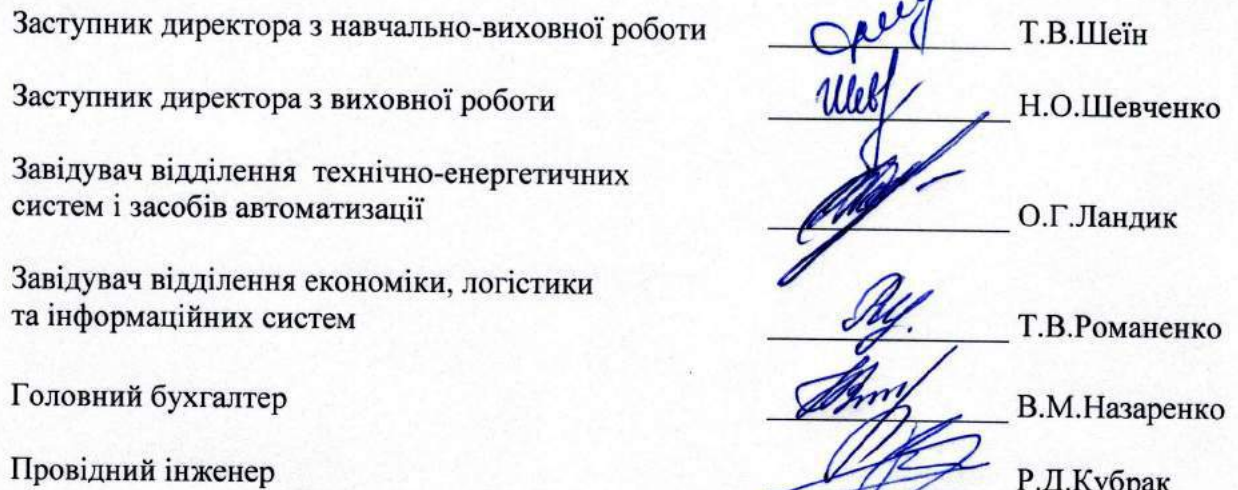 Заступник директора з навчально-виховної роботи Т.В.Шеїн
Заступник директора з виховної роботи Н.О.Шевченко
Завідувач відділення технічно-енергетичних
систем і засобів автоматизації О.Г.Ландик
Завідувач відділення економіки, логістики
та інформаційних систем Т.В.Романенко
Головний бухгалтер В.М.Назаренко
Провідний інженер Р.Д.Кубрак